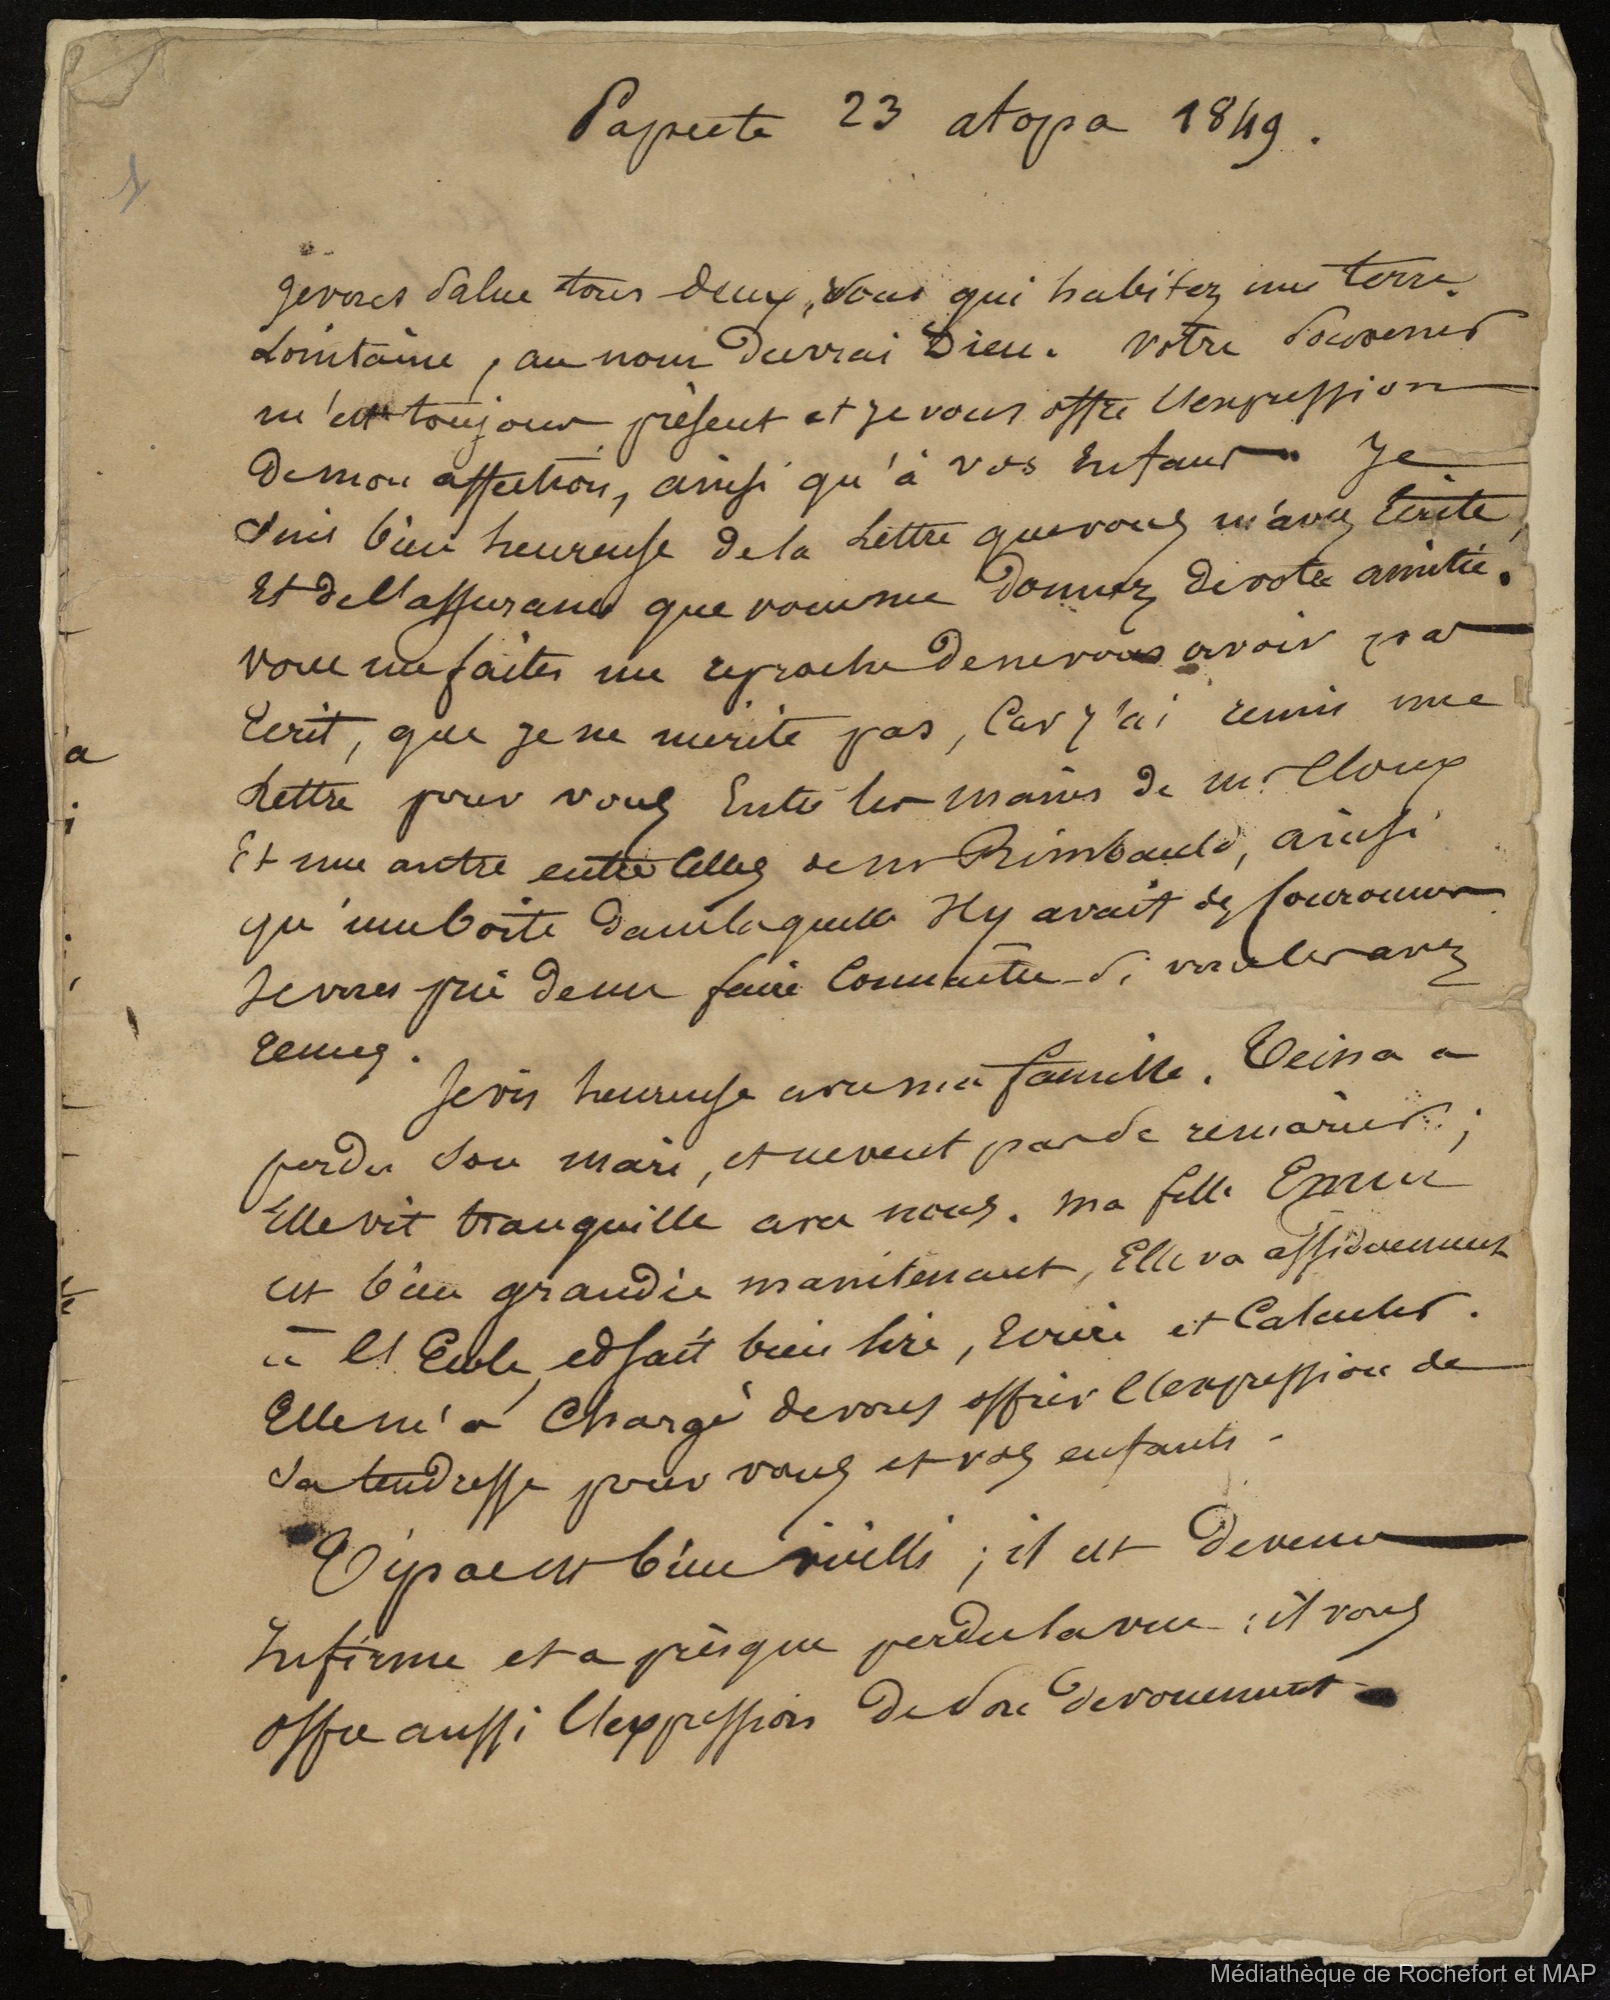 Papeete 23 atopa 1849.
1
Je vous salue tous deux, vous qui habitez une terre
Lointaine, au nom du vrai Dieu. Votre souvenir
m'est toujour présent et je vous offre l'expression
de mon affection, ainsi qu'à vos Enfans. Je
suis bien heureuse de la Lettre que vous m'avez Ecrite,
Et de l'assurance que vous me donnez de votre amitié.
Vous me faites un reproche de ne vous avoir pas
Ecrit, que je ne mérite pas, Car j'ai remis une
Lettre pour vous Entre les mains de mr Cloux
Et une autre entre Celles de mr Rimbauld, ainsi
qu'une boite dans laquelle Il y avait des Couronnes
Je vous prie de me faire Connaitre si vous les avez
reçues.
Je vis heureuse avec ma famille. Teina a
perdu son mari, et ne veut pas se remarier;
Elle vit tranquille avec nous. ma fille
est bien grandie maintenant, Elle va assiduement
à l'Ecole, et sait bien lire, Ecrire et Calculer.
Elle m'a Chargé de vous offrir l'expression de
sa tendresse pour vous et vos enfants.
est bien vieilli; il est devenu
Infirme et a presque perdu la vue; il vous
offre aussi l'expression de son devouement.
a
i
Médiathèque de Rochefort et MAP